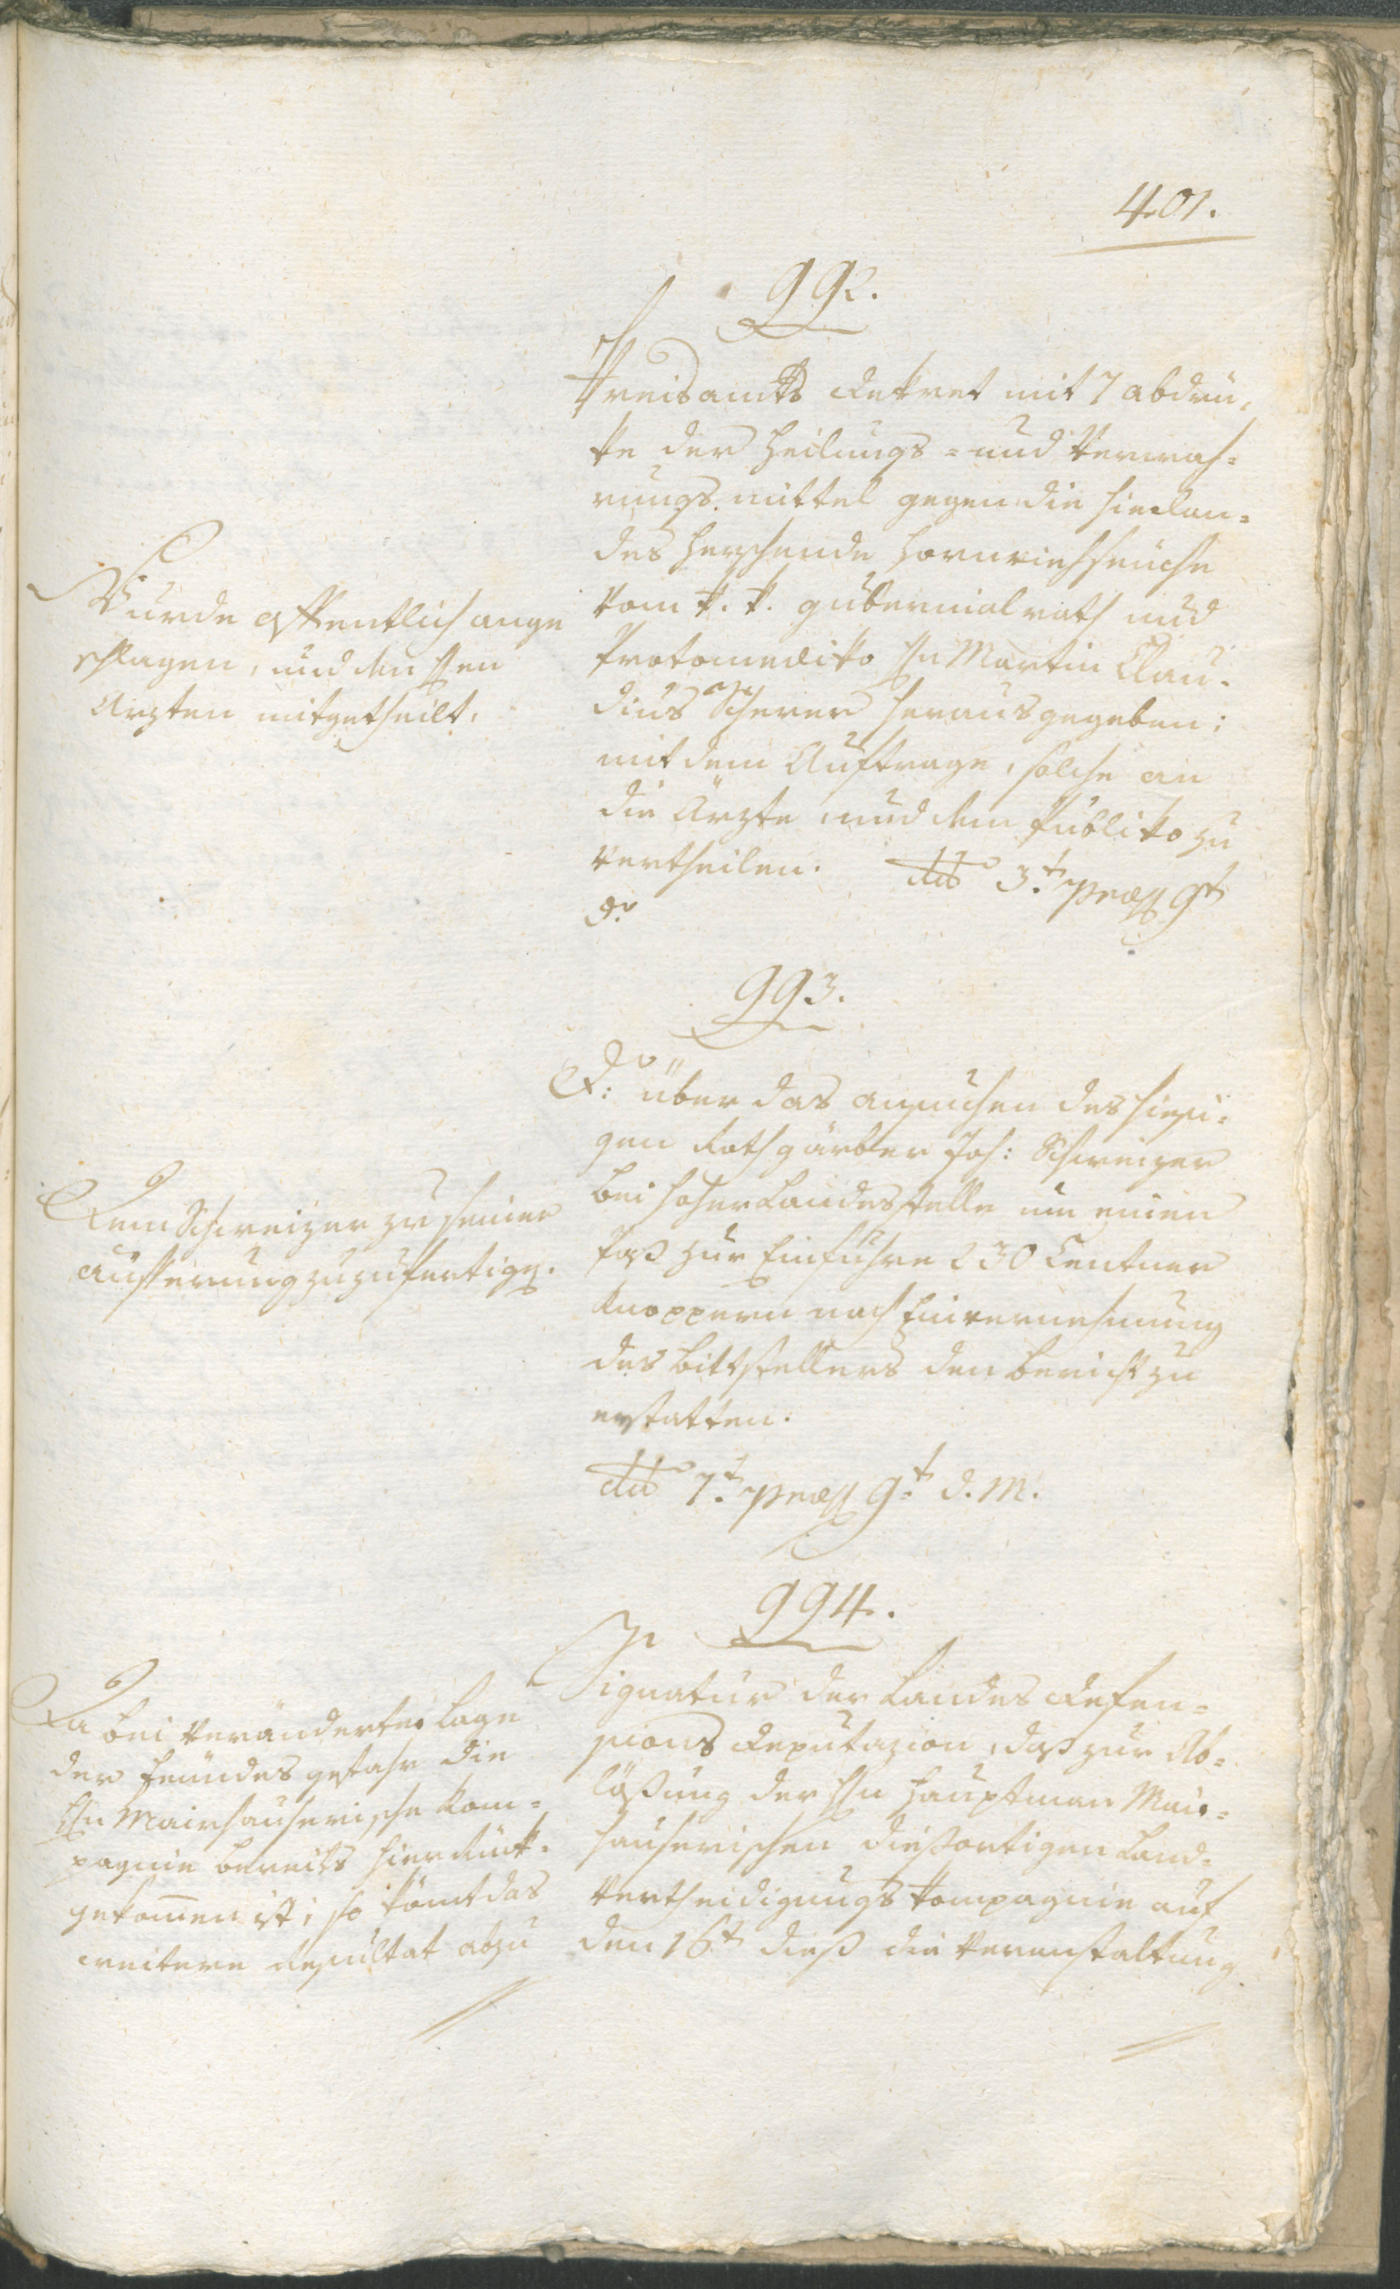 401.
992.
Kreisamts Dekret mit 7 abdrü,
ke der Heilungs- und Verwah-
rungs.mittel gegen die hierlan-
des herschende Hornviehseüche
vom k. k. gubernialrath und
Protomediko Hn Martin Clau-
dius Scherer herausgegeben;
mit dem Auftrage, solche an
die Ärzte, und dem Publiko zu
vertheilen. ddo 3t. præs 9t
d.
Wurde öffentlich ange
schlagen, und den Hen
Ärzten mitgetheilt.
993.
Do: über das ansuchen des hiesi-
gen Rothgärber Joh: Schweizer
bei hoher Landesstelle um einen
Paß zur Einfuhre 230 Centner
Knoppern nach Einvernehmung
des Bittstellers den Bericht zu
erstatten.
ddo 7t. præs 9t. d. M.
Dem Schweizer zu seiner
äusserung zuzufertigen.
994.
Signatur der Landes Defen-
sions Deputazion, daß zur Ab-
lößung der Hn Hauptman Mair-
hauserischen dießortigen Land-
vertheidigungs kompagnie auf
den 16t dieß die Veranstaltung
Da bei veränderter Lage
der Feindes gefahr die
Hn Mairhauserische Kom-
pagnie bereits hier rück-
gekom̅en ist; so kömt das
weitere Resultat abzu